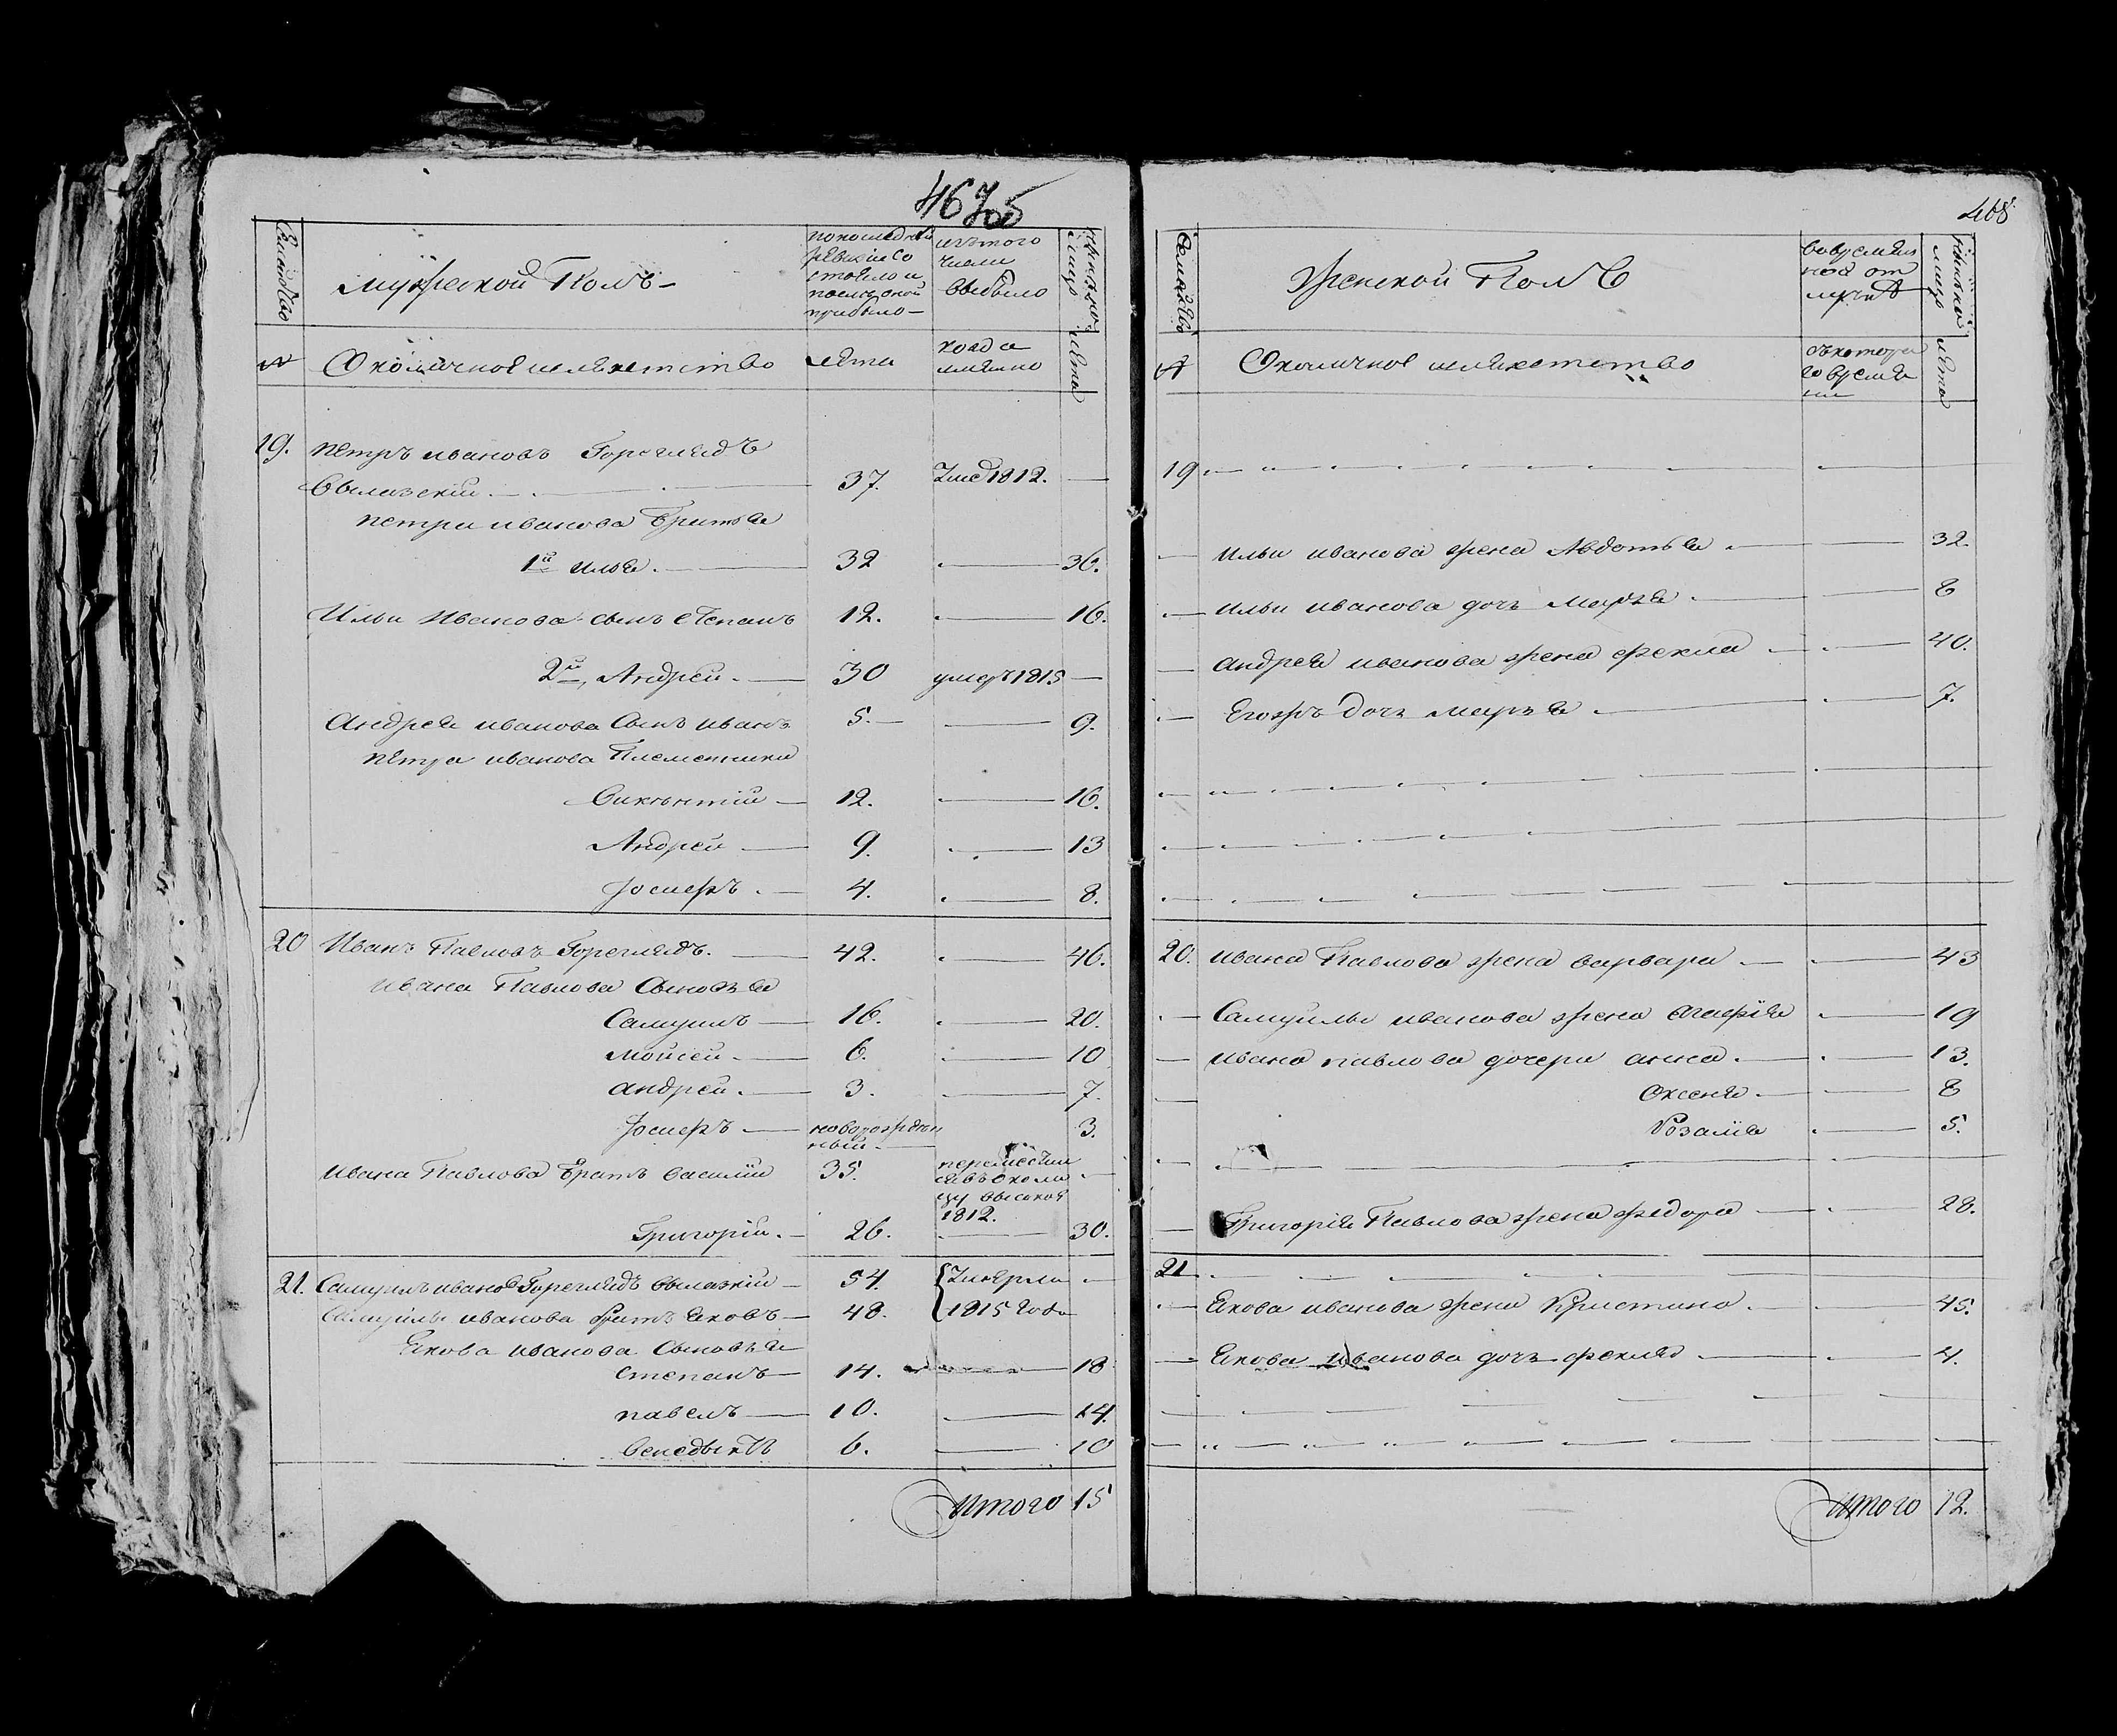 4675
Семейство
мужеской Полъ
по последней
ревизіи со
стояло и
после оной
прибыло
изъ того
числа
выбыло
ныне на
лицо
№
Околичное шляхетство
лета
когда
имянно
лета
19. петръ ивановъ Гореглядъ
Вылазскій 37. Умер 1812. —
петра иванова братья
1й илья. 32 — 36.
Ильи Иванова сынъ Степанъ 12. — 16.
2й, Андрей. 30 умер 1815 —
Андрея иванова сынъ иванъ 5. — 9.
петра иванова Племенники
Викентій 12. — 16.
Андрей 9. — 13
Іосифъ. 4. — 8.
20 Иванъ Павловъ Гореглядъ. 42. — 46.
Ивана Павлова Сыновья
Самуилъ 16. — 20.
Мойсей 6. — 10
андрей. 3. — 7.
Іосифъ новорожден
ный 3.
ивана Павлова братъ василий 35. переместил
ся въ околи
цу высокое
1812.
Григорій. 26. — 30.
21. Самуилъ ивановъ Гореглядъ вылазкій 54. Умерли
Самуйлы иванова братъ Яковъ 48. 1815 года
Якова иванова Сыновья
Степанъ 14. 18
павелъ 10. — 14.
Венедыктъ 6. — 10
Итого 15
468
Семейство
Женской Полъ
во времян
ной от
лучке
ныне на
лицо
№
Околичное шляхетство
съ котора
го время
ни
лета
19
— Ильи иванова жена Авдотья — 32.
— ильи иванова дочь марья — 8
— андрея иванова жена фекла — 40.
— Егожъ дочь марья — 7.
20. ивана Павлова жена варвара — 43
— Самуйлы иванова жена агафія — 19
— ивана павлова дочери анна. — 13.
Оксенія — 8
Розалія — 5.
— Григорія Павлова жена федора — 28.
21
— Якова иванова жена Кристина. — 45.
— Якова иванова дочь фекла — 4.
Итого 12.